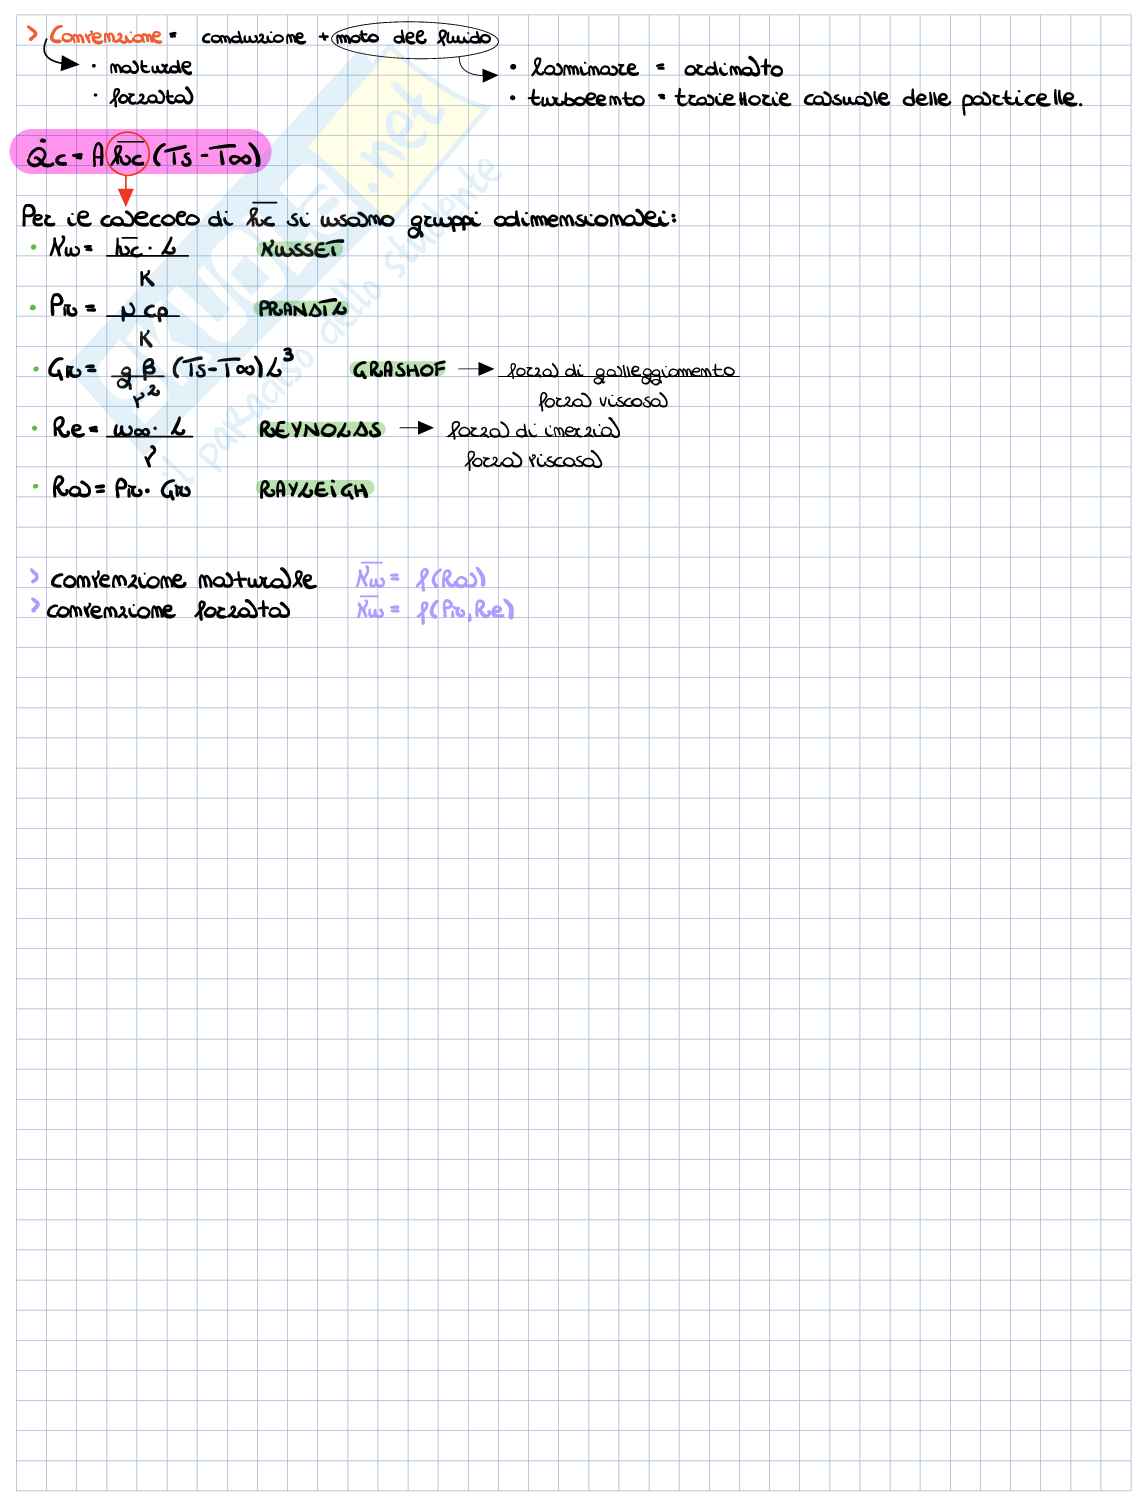 > Convenzione = conduzione + moto del fluido
• naturale
• forzata
• laminare = ordinato
• turbolento = traiettorie casuale delle particelle.
Q̇c = A h̅c (Ts - T∞)
Per il calcolo di h̅c si usano gruppi adimensionali:
• Nu = h̅c · L / K NUSSET
• Pr = μ cp / K PRANDTL
• Gr = g β / ν² (Ts - T∞) L³ GRASHOF → forza di galleggiamento / forza viscosa
• Re = w∞ · L / ν REYNOLDS → forza di inerzia / forza viscosa
• Ra = Pr · Gr RAYLEIGH
> convenzione naturale N̅u̅ = f(Ra)
> convenzione forzata N̅u̅ = f(Pr, Re)
SKUOLA.net
il paradiso dello studente